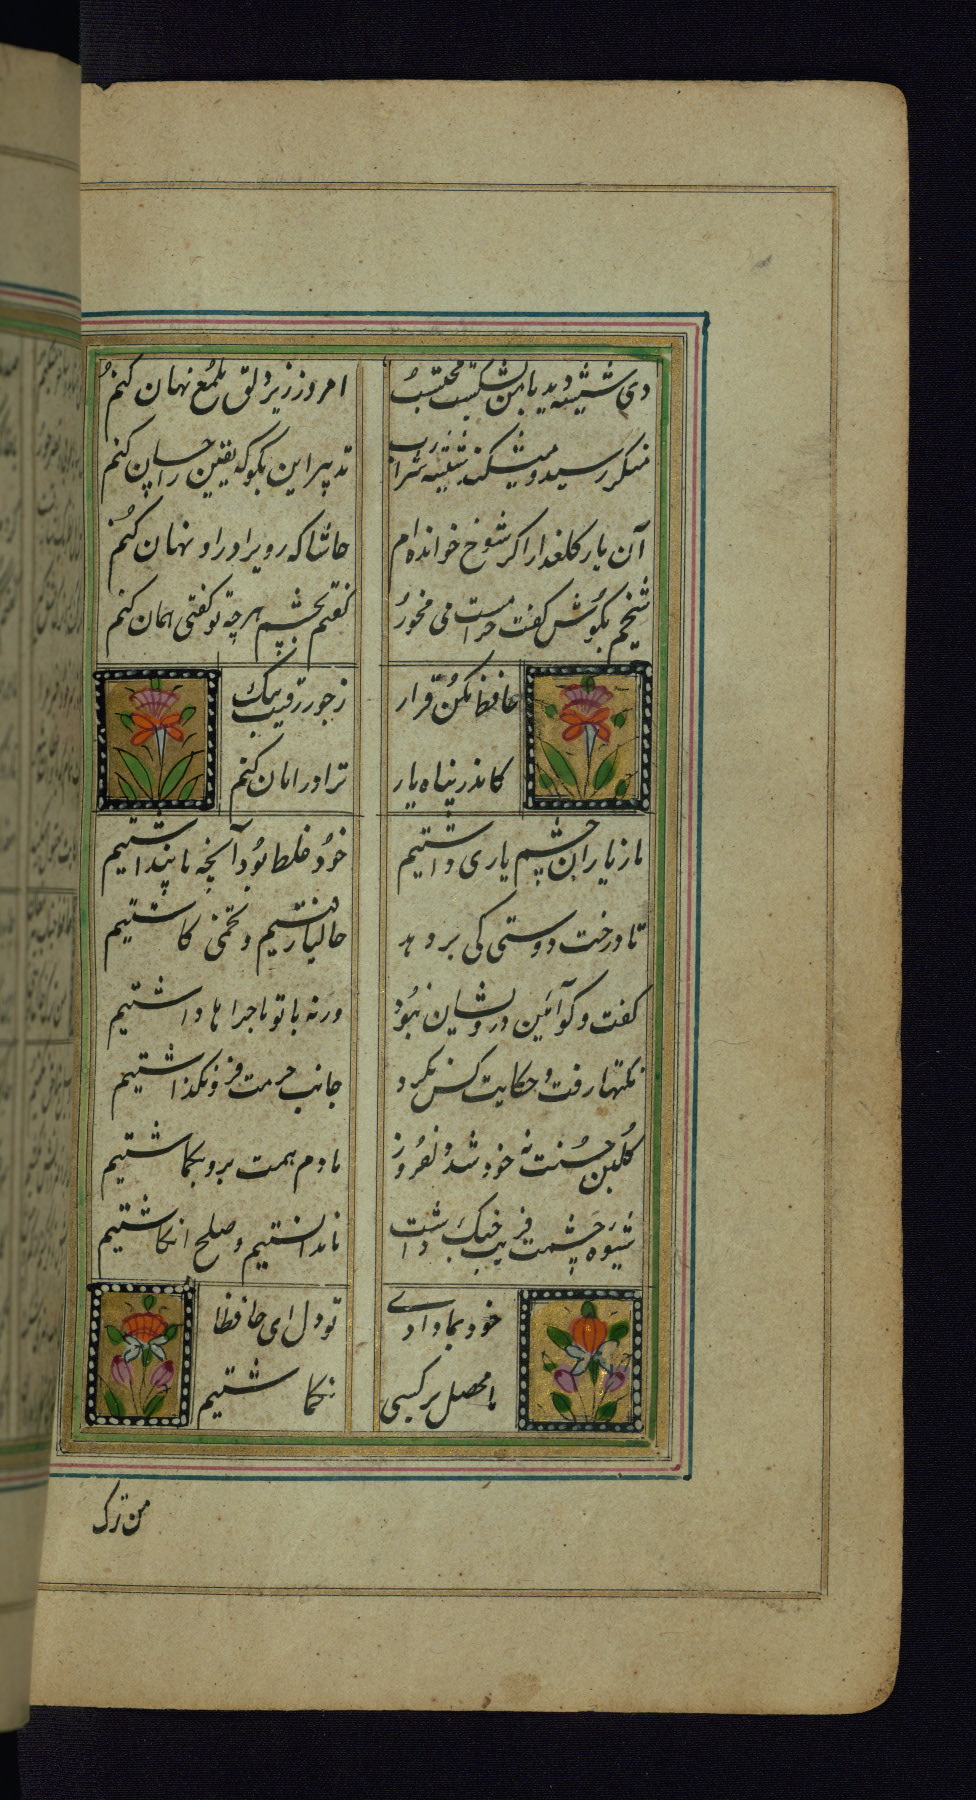 دی شیشه دید با من بشکست محتسب
امروز زیر دلق ملمع نهان کنم
منکر رسید و میشکند شیشه شراب
تدبیر این بگو که یقین را چسان کنم
آن یار کلغدار اکر شوخ خوانده ام
حاشا که رو برادر او نهان کنم
شیخم بکوش کفت حرامست می مخور
کفتم بچشم هرچه تو کفتی همان کنم
حافظ مکن قرار
ز جور رقیب بیک
کاندر پناه یار
ترا در امان کنم
ما ز یاران چشم یاری داشتیم
خود غلط بود آنچه ما پنداشتیم
تا درخت دوستی کی بر دهد
حالیا رفتیم و تخمی کاشتیم
کفت و کو آئین درویشان نبود
ورنه با تو ماجراها داشتیم
نکتها رفت و حکایت کس نکرد
جانب حرمت فرو نکذاشتیم
کلبن حسنت نه خود شد دلفروز
ما دم همت برو بکماشتیم
شیوه چشمت فریب جنک داشت
ما ندانستیم و صلح انکاشتیم
خود بما دادی
تو دل ای حافظا
ما محصل بر کسی
نکماشتیم
من ترک